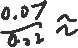 0.07/0.22 ≈